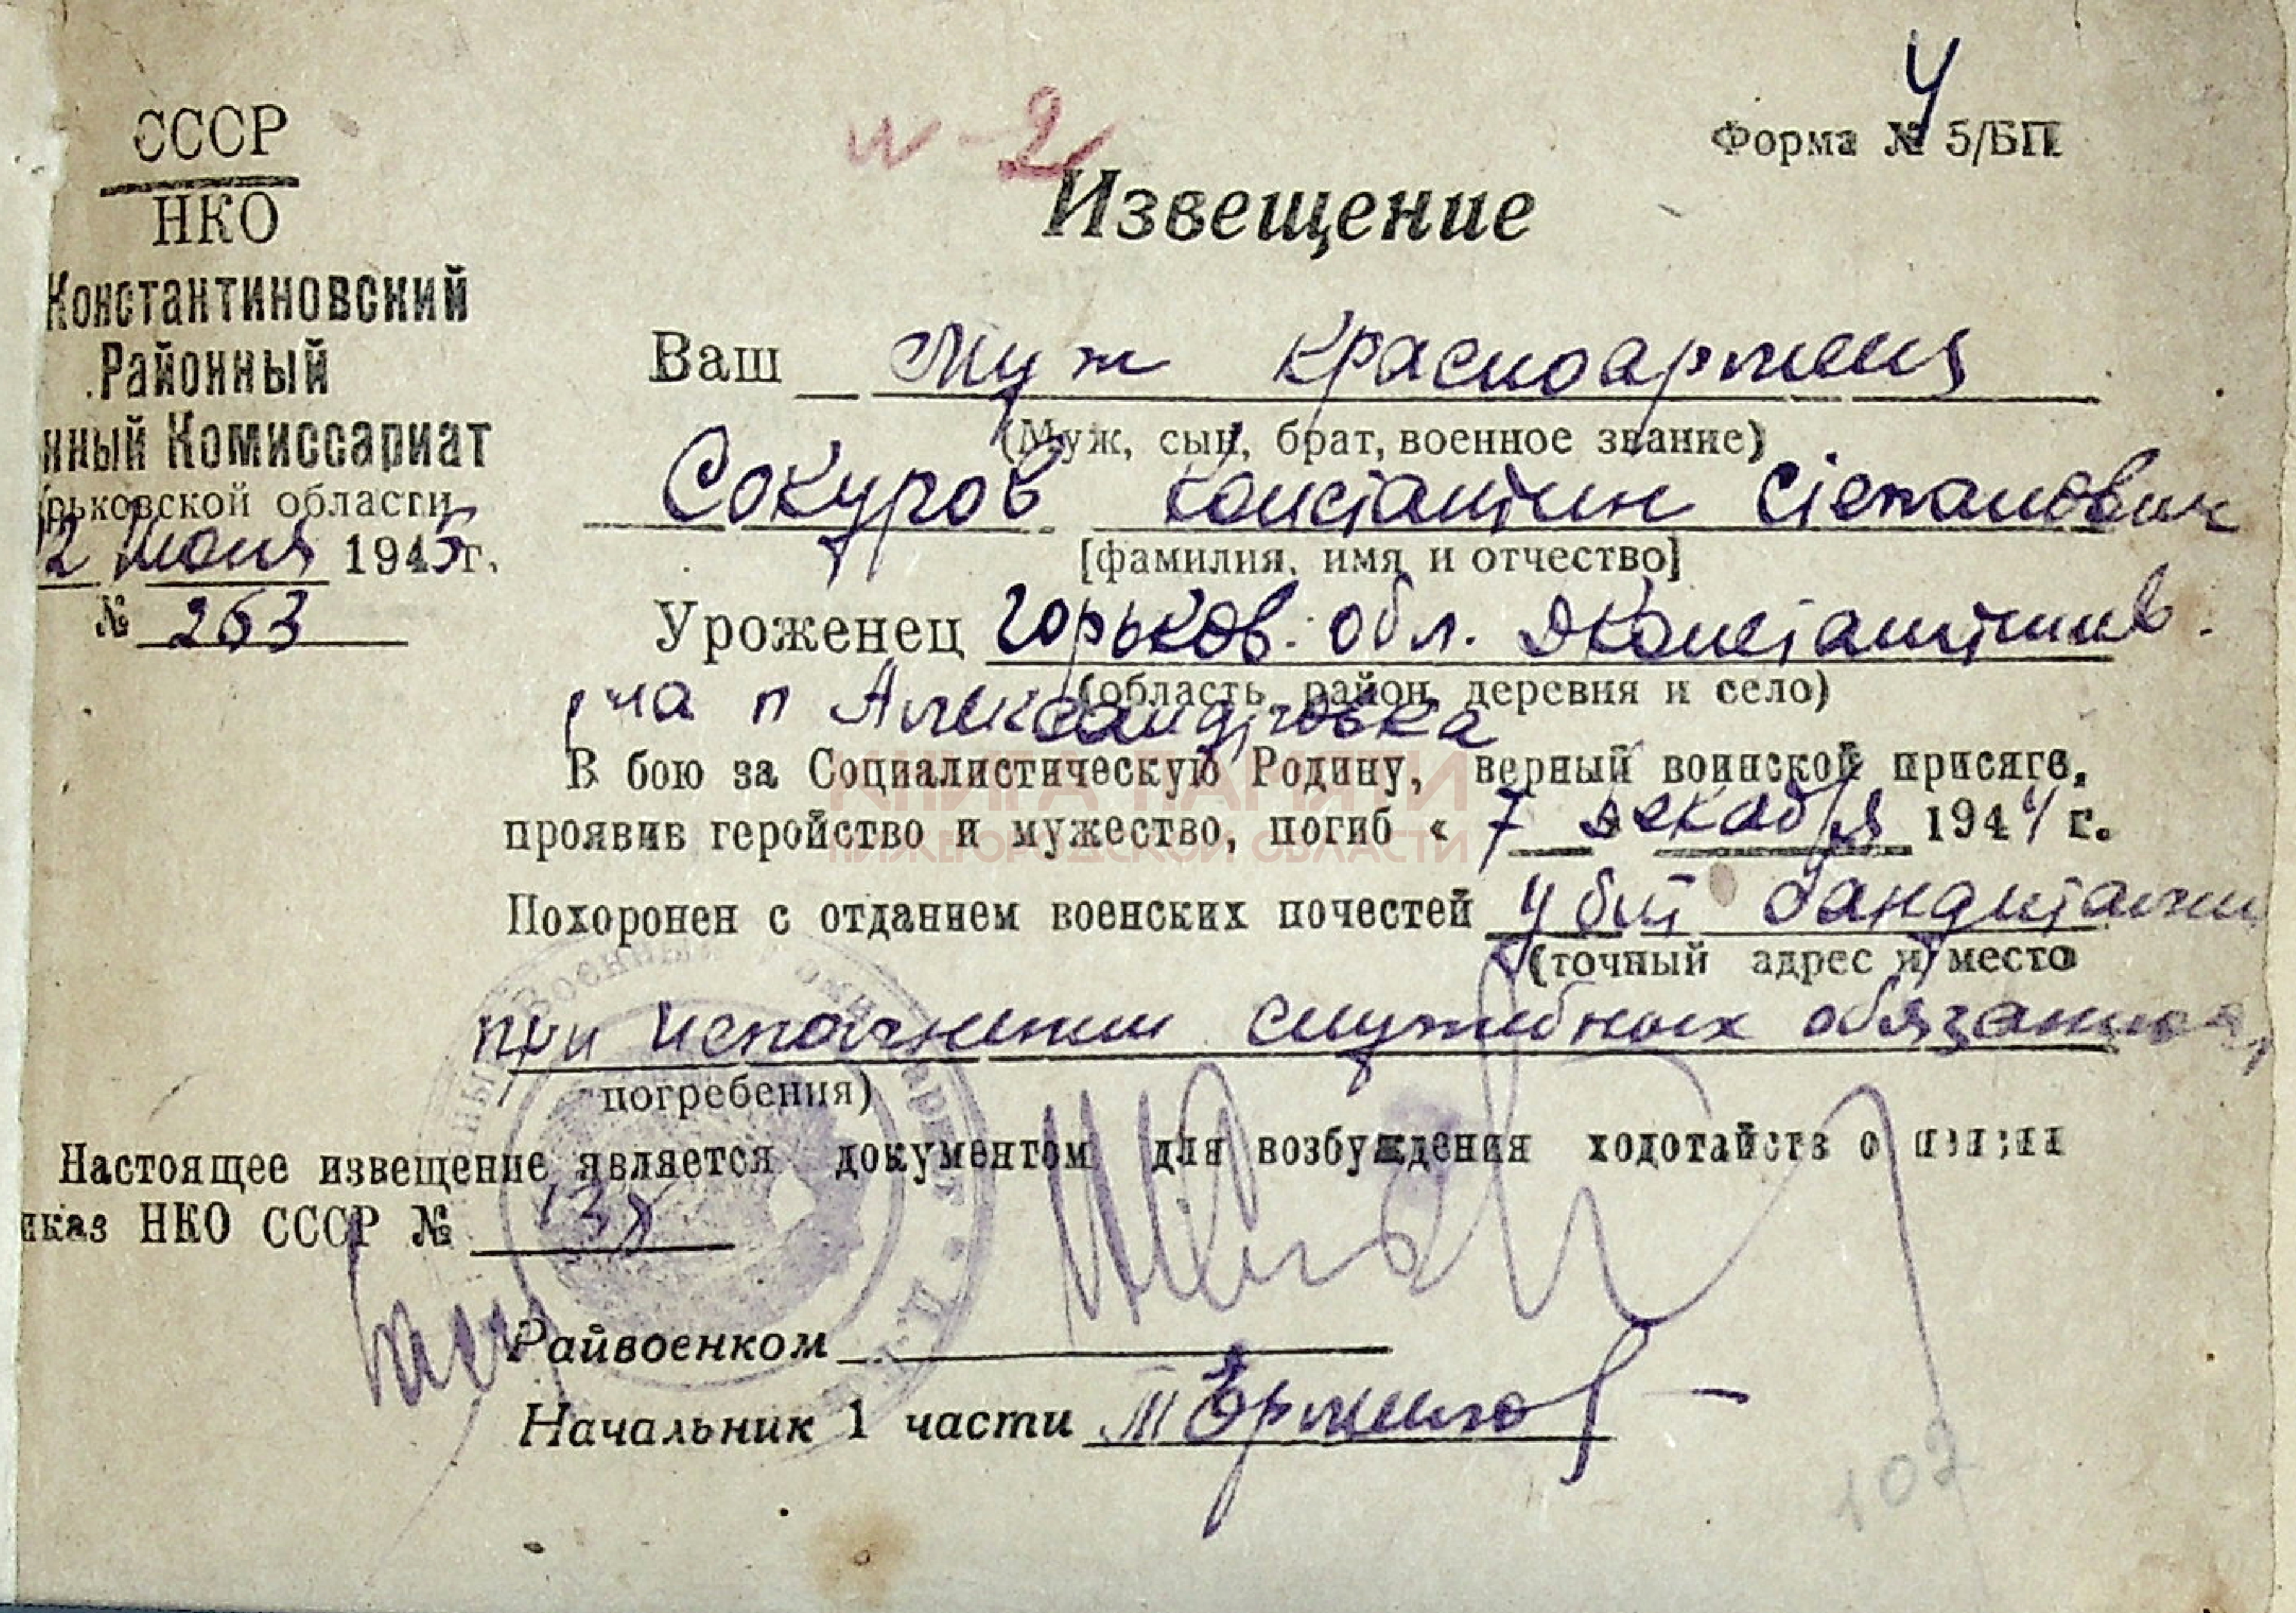 СССР
НКО
Константиновский
Районный
нный Комиссариат
рьковской области
2 июня 1945 г.
№ 263
и-2
Форма № 5/БП
Извещение
Ваш муж красноармеец
(Муж, сын, брат, военное звание)
Сокуров Константин Степанович
[фамилия, имя и отчество]
Уроженец Горьков. обл. Константинов.
(область, район, деревня и село)
р на п Александровка
В бою за Социалистическую Родину, верный воинской присяге,
проявив геройство и мужество, погиб « 7 декабря 1944 г.
Похоронен с отданием военских почестей убит бандитами
(точный адрес и место
при исполнении служебных обязаннос
погребения)
Настоящее извещение является документом для возбуждения ходотайств о пенсии
иказ НКО СССР №
Райвоенком
Начальник 1 части
102
КНИГА ПАМЯТИ
НИЖЕГОРОДСКОЙ ОБЛАСТИ